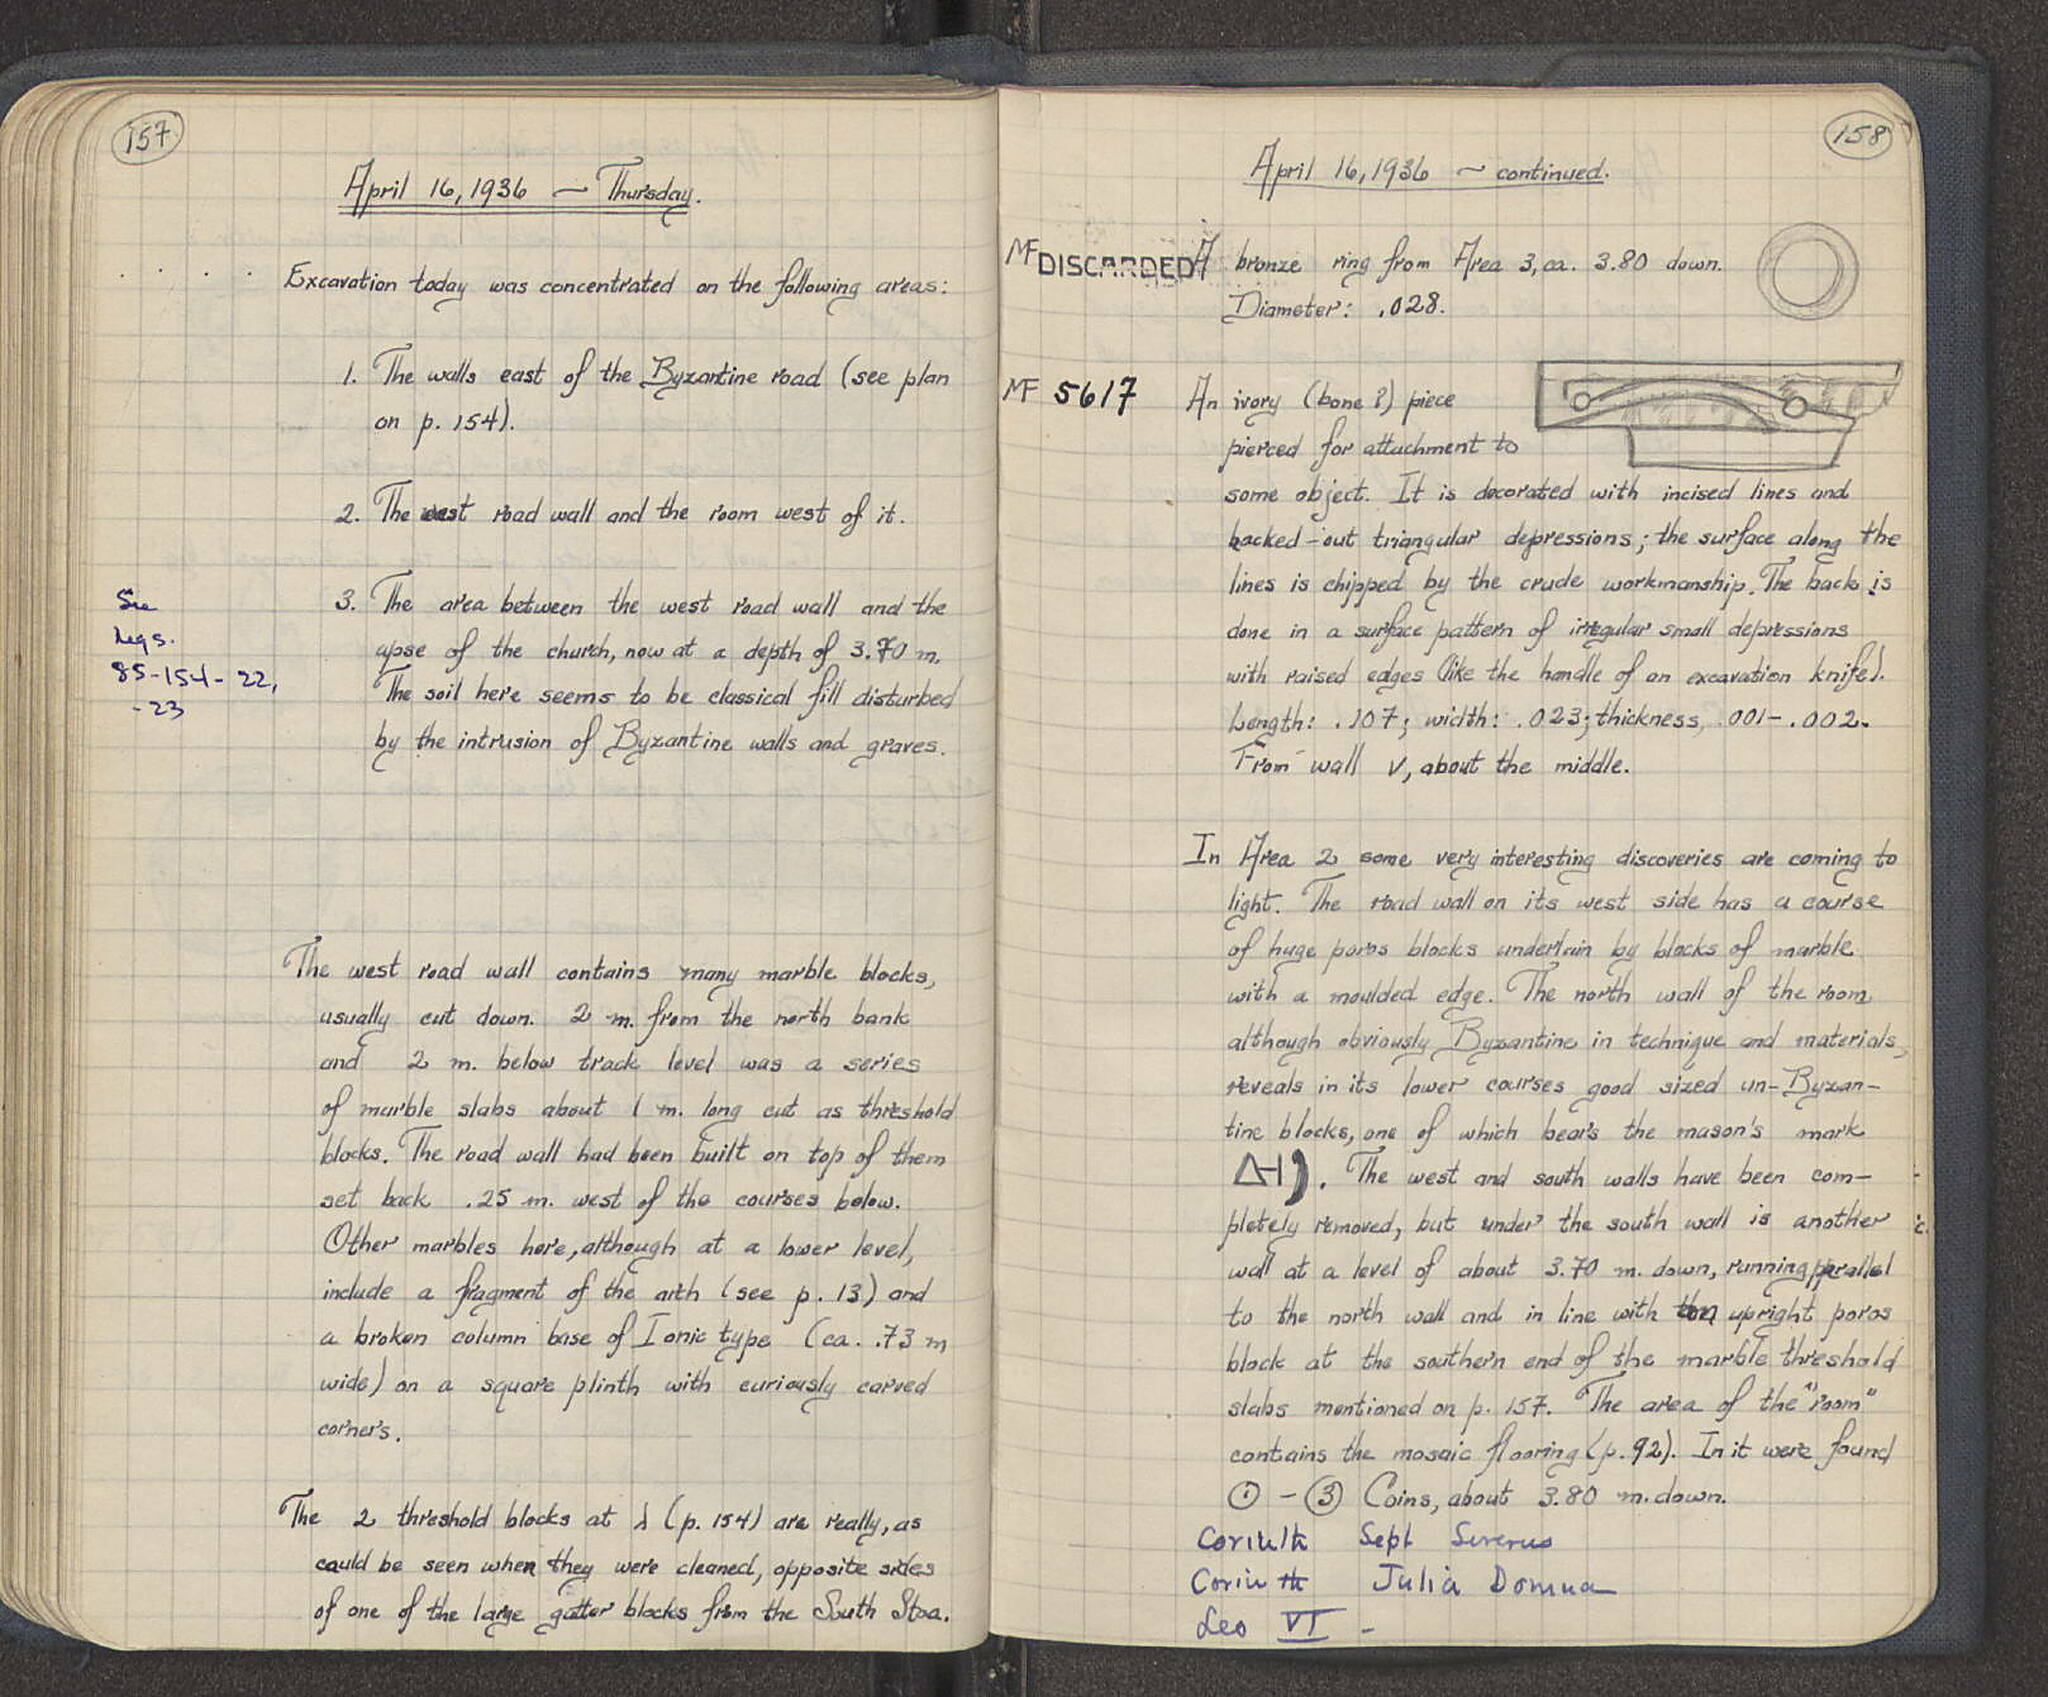 157
April 16, 1936 — Thursday.
Excavation today was concentrated on the following areas:
1. The walls east of the Byzantine road (see plan
on p. 154).
2. The west road wall and the room west of it.
See
Negs.
85-154-22,
-23
3. The area between the west road wall and the
apse of the church, now at a depth of 3.70 m.
The soil here seems to be classical fill disturbed
by the intrusion of Byzantine walls and graves.
The west road wall contains many marble blocks,
usually cut down. 2 m. from the north bank
and 2 m. below track level was a series
of marble slabs about 1 m. long cut as threshold
blocks. The road wall had been built on top of them
set back .25 m. west of the courses below.
Other marbles here, although at a lower level,
include a fragment of the arth (see p. 13) and
a broken column base of Ionic type (ca. .73 m
wide) on a square plinth with curiously carved
corners.
The 2 threshold blocks at λ (p. 154) are really, as
could be seen when they were cleaned, opposite sides
of one of the large gutter blocks from the South Stoa.
158
April 16, 1936 — continued.
MF DISCARDED A bronze ring from Area 3, ca. 3.80 down.
Diameter: .028.
MF 5617 An ivory (bone?) piece
pierced for attachment to
some object. It is decorated with incised lines and
hacked-out triangular depressions; the surface along the
lines is chipped by the crude workmanship. The back is
done in a surface pattern of irregular small depressions
with raised edges (like the handle of an excavation knife).
Length: .107; width: .023; thickness, .001-.002.
From wall v, about the middle.
In Area 2 some very interesting discoveries are coming to
light. The road wall on its west side has a course
of huge poros blocks underlain by blocks of marble
with a moulded edge. The north wall of the room,
although obviously Byzantine in technique and materials,
reveals in its lower courses good sized un-Byzan-
tine blocks, one of which bears the mason's mark
ΔΗ). The west and south walls have been com-
pletely removed, but under the south wall is another
wall at a level of about 3.70 m. down, running parallel
to the north wall and in line with an upright poros
block at the southern end of the marble threshold
slabs mentioned on p. 157. The area of the "room"
contains the mosaic flooring (p. 92). In it were found
① - ③ Coins, about 3.80 m. down.
Corinth Sept Severus
Corinth Julia Domna
Leo VI -